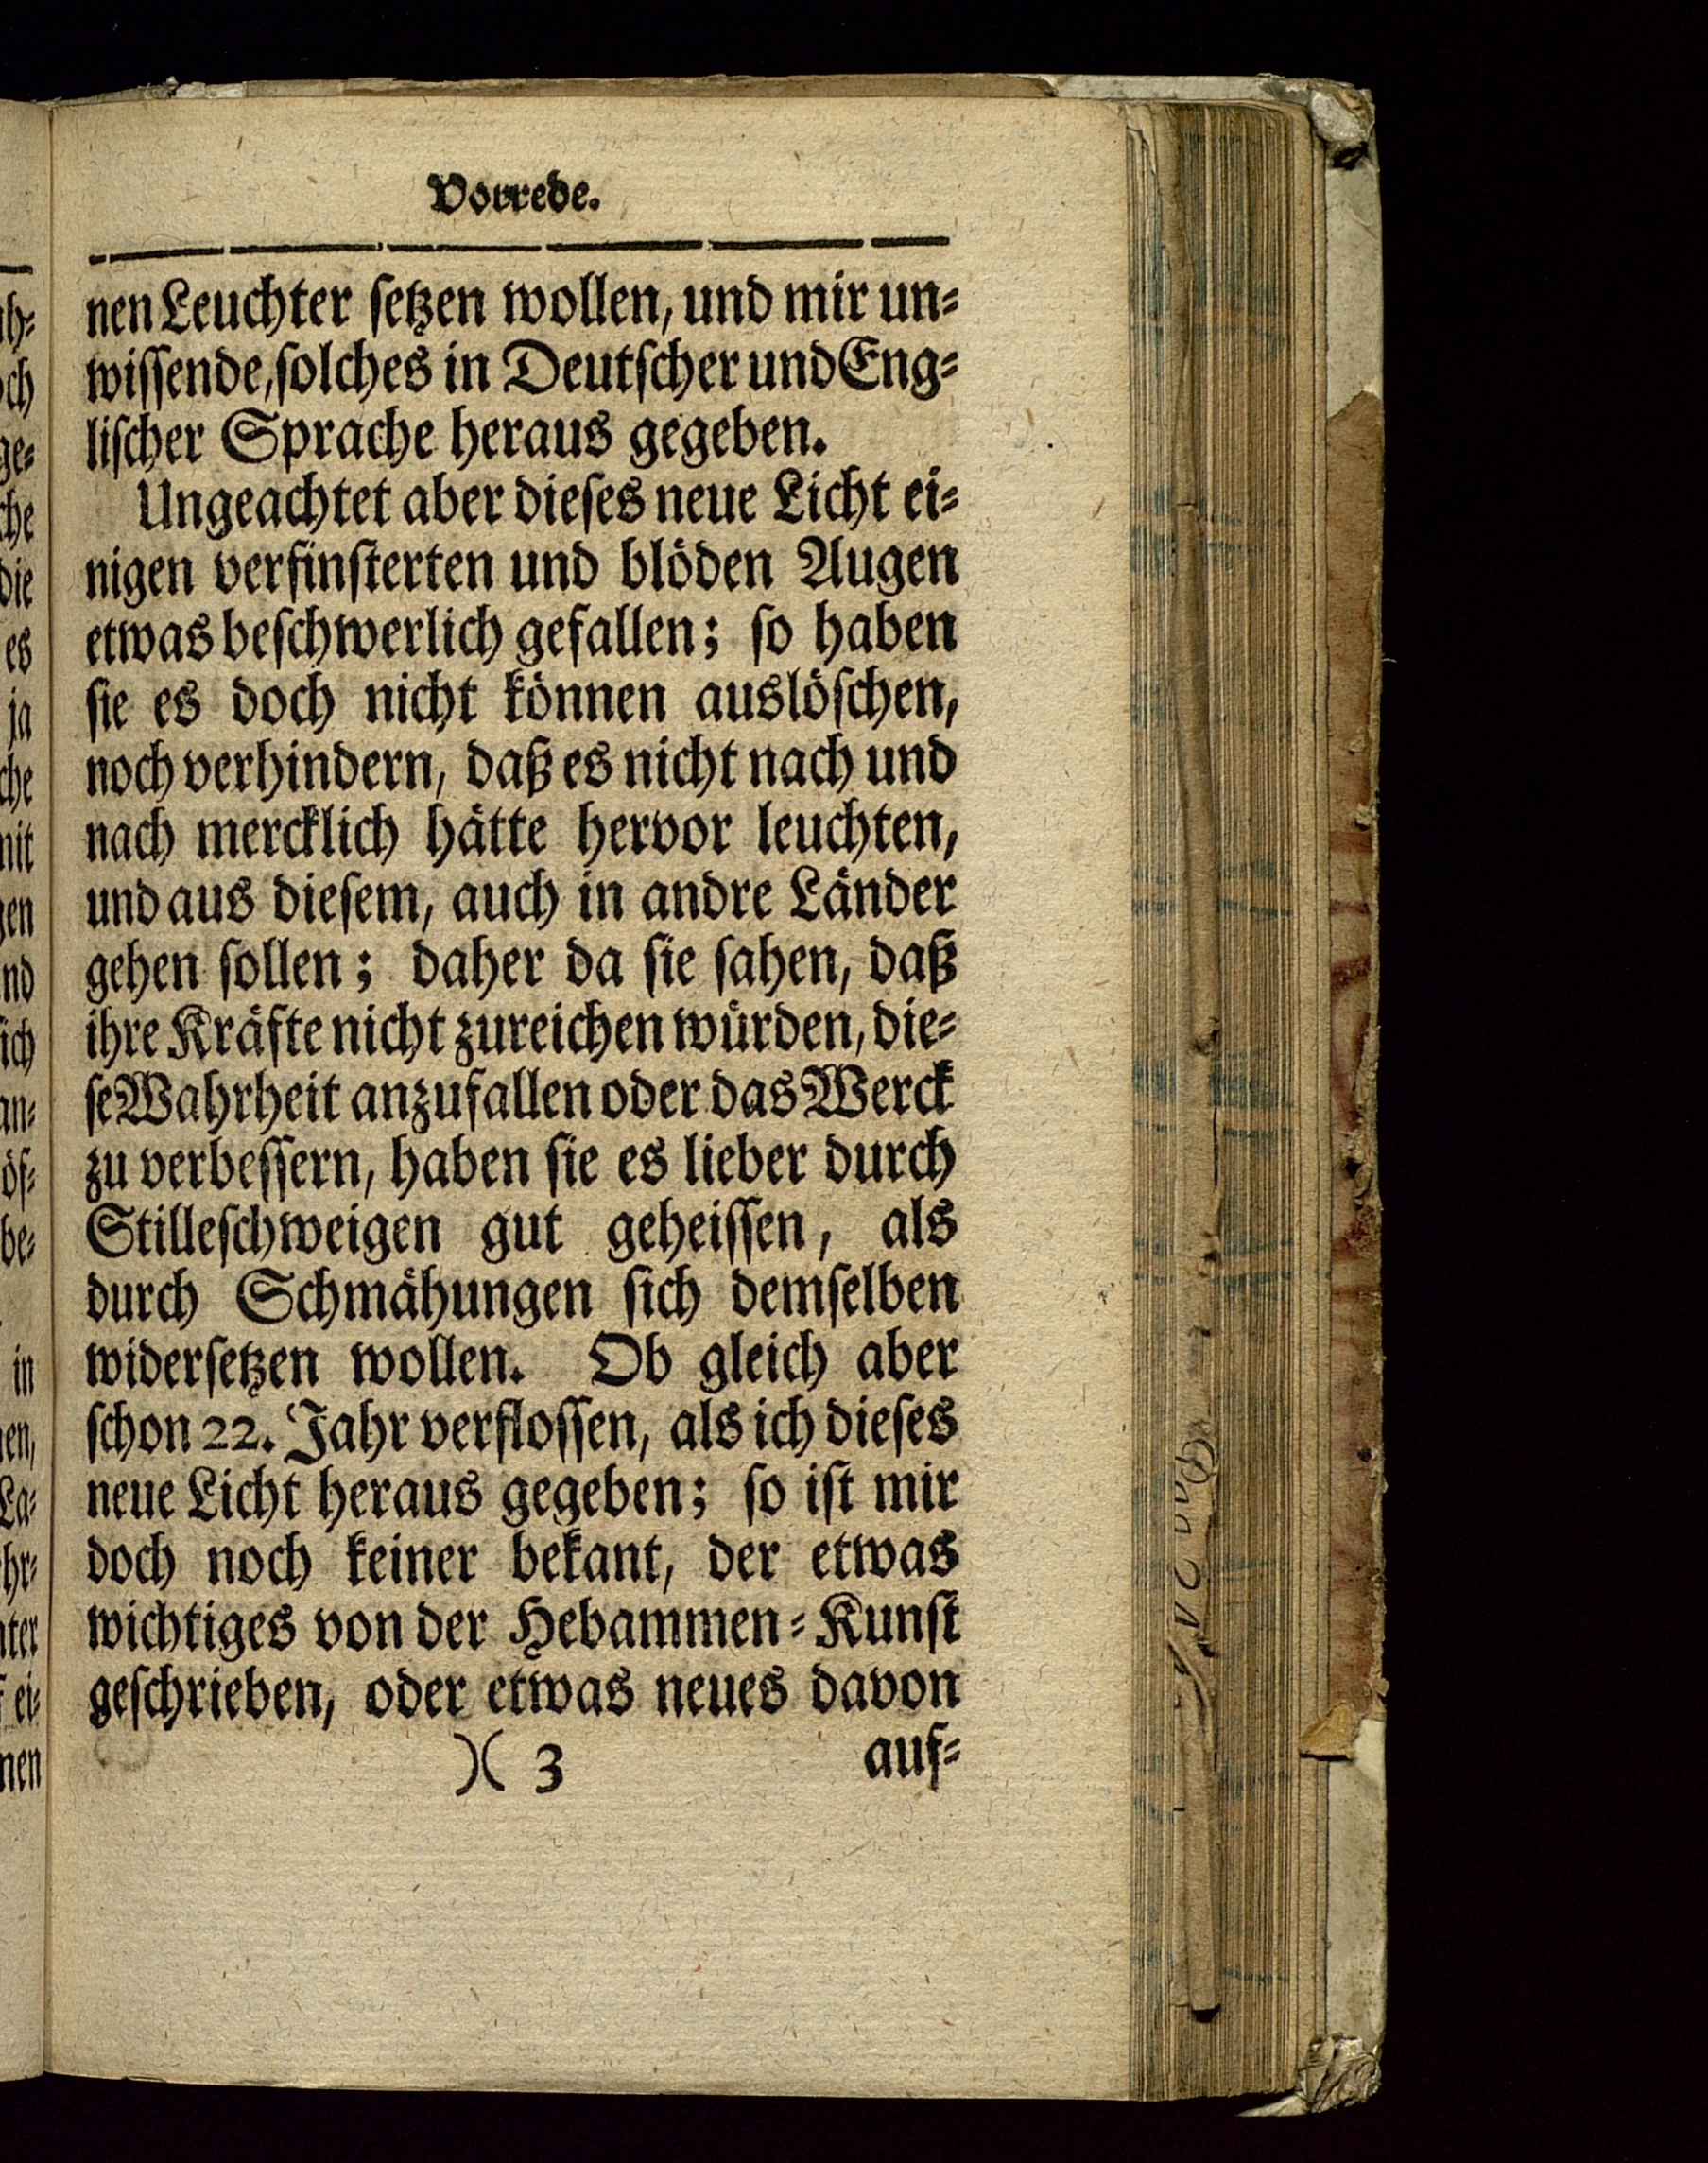 Vorrede.
nen Leuchter ſetzen wollen, und mir un⸗
wiſſende, ſolches in Deutſcher und Eng⸗
liſcher Sprache heraus gegeben.
Ungeachtet aber dieſes neue Licht ei⸗
nigen verfinſterten und blöden Augen
etwas beſchwerlich gefallen; ſo haben
ſie es doch nicht können auslöſchen,
noch verhindern, daß es nicht nach und
nach mercklich hätte hervor leuchten,
und aus dieſem, auch in andre Länder
gehen ſollen; daher da ſie ſahen, daß
ihre Kräfte nicht zureichen würden, die⸗
ſe Wahrheit anzufallen oder das Werck
zu verbeſſern, haben ſie es lieber durch
Stilleſchweigen gut geheiſſen, als
durch Schmähungen ſich demſelben
widerſetzen wollen. Ob gleich aber
ſchon 22. Jahr verfloſſen, als ich dieſes
neue Licht heraus gegeben; ſo iſt mir
doch noch keiner bekant, der etwas
wichtiges von der Hebammen⸗Kunſt
geſchrieben, oder etwas neues davon
)( 3 auf⸗